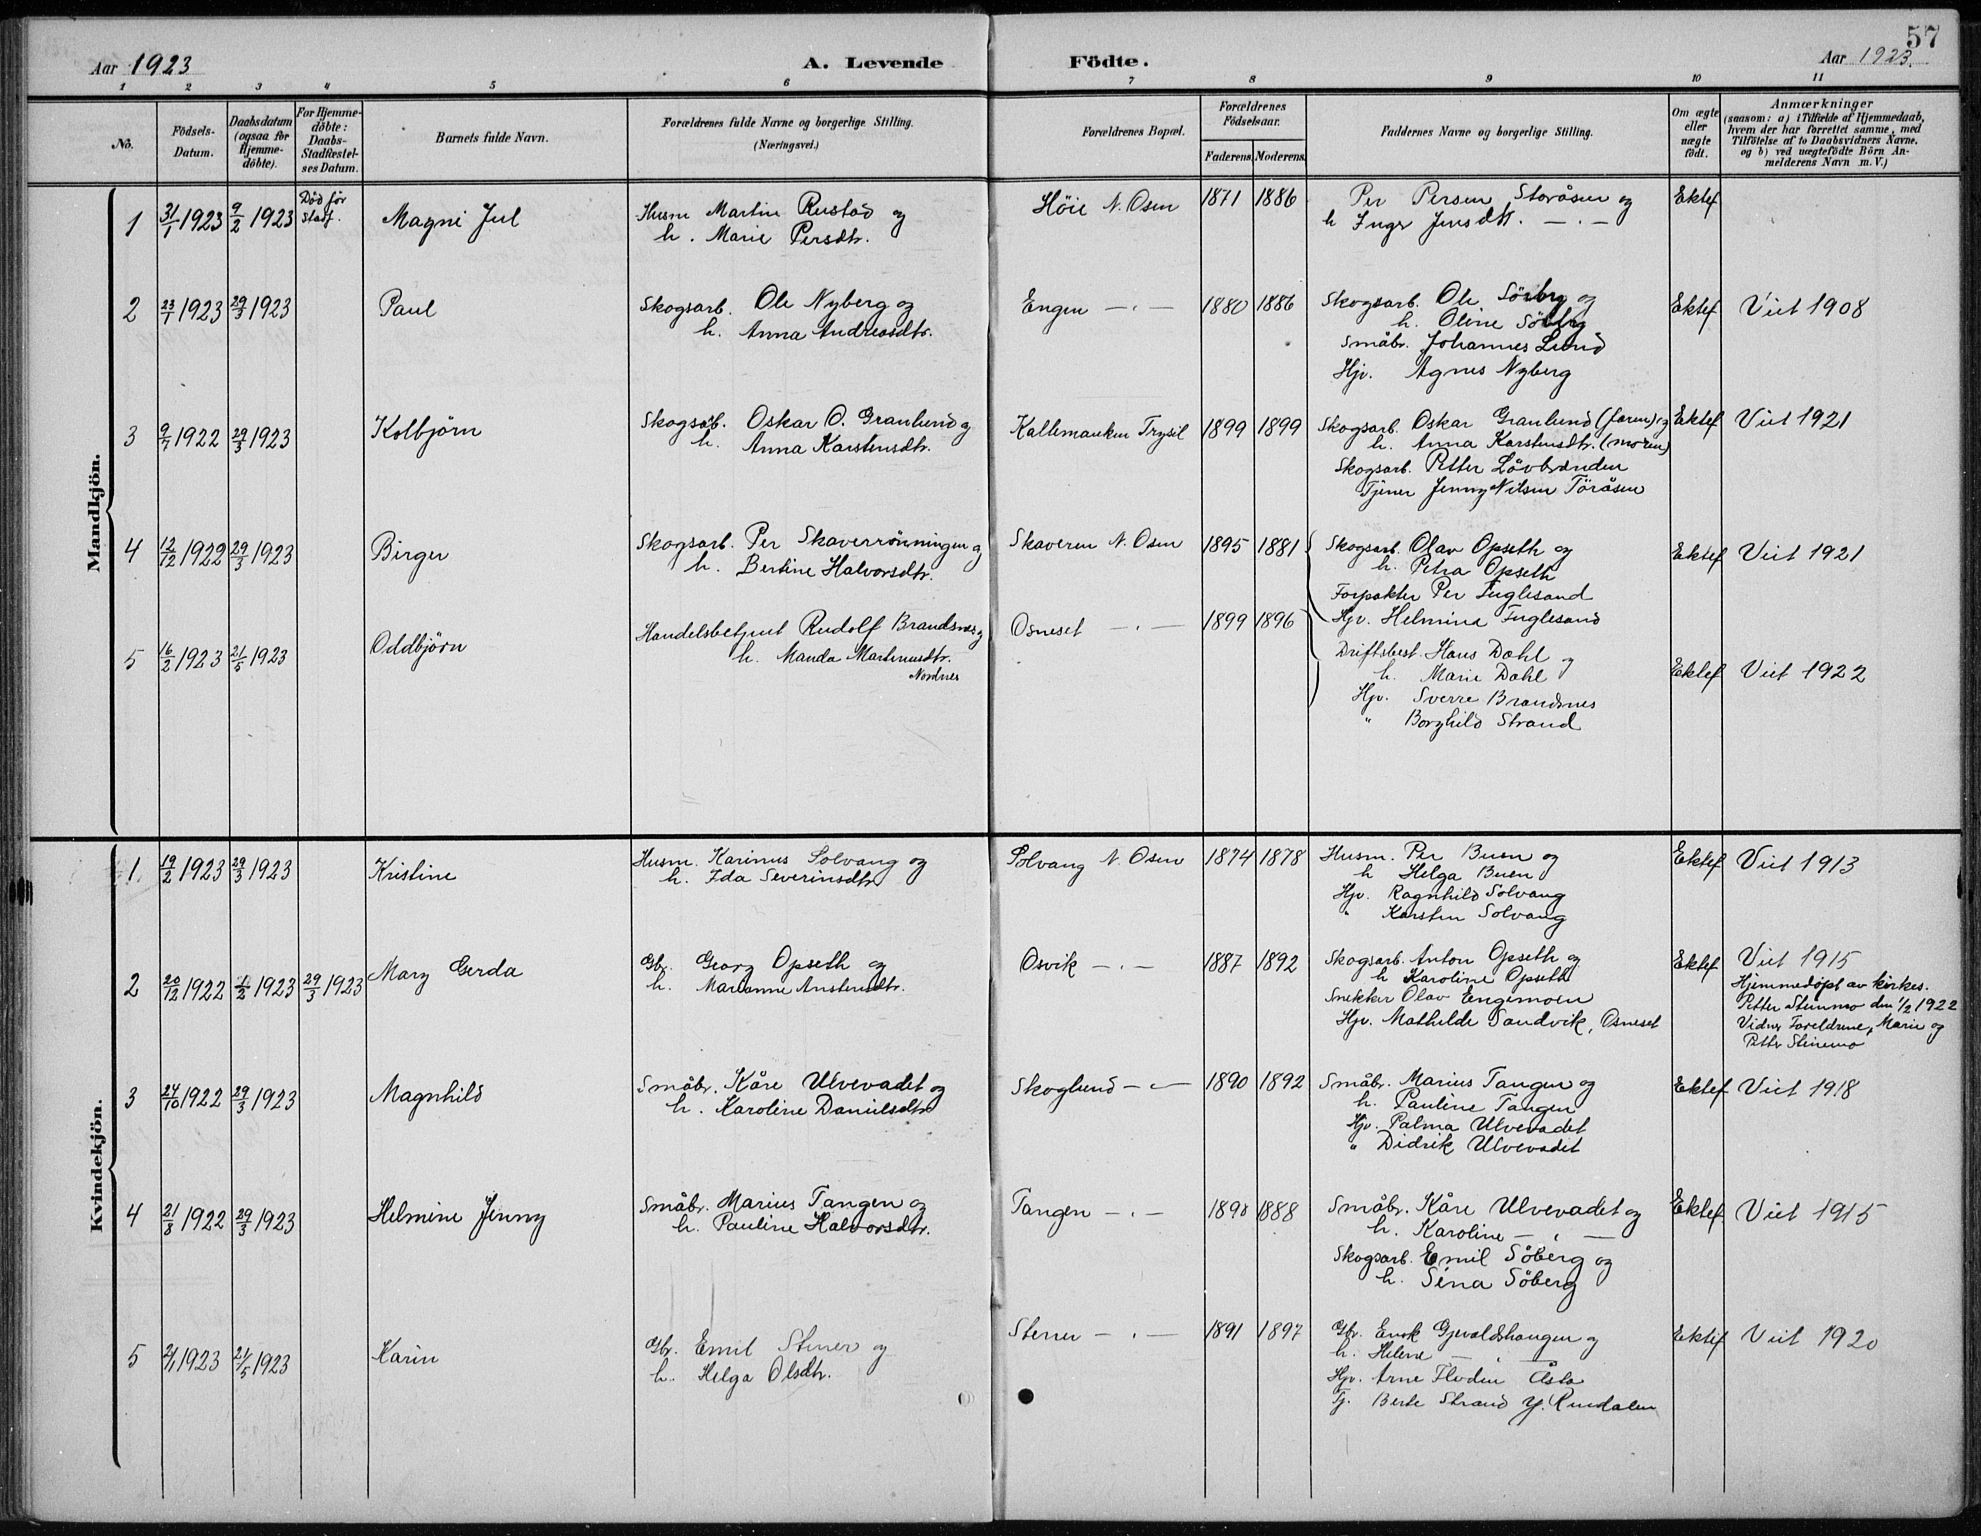 57
Aar 1923
A. Levende
Födte.
Aar 1923.
1 2 3 4 5 6 7 8 9 10 11
No.
Födsels-Datum.
Daabsdatum (ogsaa för Hjemme-döbte).
For Hjemme-döbte: Daabs-Stadfestel-ses Datum.
Barnets fulde Navn.
Forældrenes fulde Navne og borgerlige Stilling. (Næringsvei.)
Forældrenes Bopæl.
Forældrenes Födselsaar.
Faderens. Moderens.
Faddernes Navne og borgerlige Stilling.
Om ægte eller uægte födt.
Anmærkninger
(saasom: a) i Tilfælde af Hjemmedaab,
hvem der har forrettet samme, med
Tilföielse af to Daabsvidners Navne,
og b) ved uægtefödte Börn An-
melderens Navn m. V.)
Mandkjön.
1 31/1 1923 9/2 1923 Død før stadf. Magne Jul
Husm Martin Rustad og
h. Marie Persdtr.
Höie N. Osen 1871 1886
Per Persen Storåsen og
h Inger Jensdtr. — . —
Ektef
2 23/1 1923 29/3 1923 Paul
Skogsarb. Ole Nyberg og
h. Anna Andreasdtr.
Engen — . — 1880 1886
Skogsarb. Ole Söberg og
h. Oline Söberg
Småbr. Johannes Lund
Hjv. Agnes Nyberg
Ektef Viet 1908
3 9/7 1922 29/3 1923 Kolbjörn
Skogsab. Oskar O. Granlund og
h. Anna Karstensdtr.
Kallemauken Trysil 1899 1899
Skogsarb. Oskar Granlund (faren) og
h. Anna Karstensdtr. (moren)
Skogsarb. Petter Lövbrænden
Tjener Jenny Nilsen Töråsen
Ektef Viet 1921
4 12/12 1922 29/3 1923 Birger
Skogsarb. Per Skaverrönningen og
h. Bertine Halvorsdtr.
Skaveren N. Osen 1895 1881
Skogsarb. Olav Opseth og
h. Petra Opseth
Forpakter Per Fuglesand
Hjv. Helmina Fuglesand
Ektef Viet 1921
5 16/2 1923 21/5 1923 Oddbjörn
Handelsbetjent Rudolf Brandsnes og
h. Manda Martinusdtr.
Nordnes
Osneset — . — 1899 1896
Driftsbest. Hans Dahl og
h. Marie Dahl
Hjv. Sverre Brandsnes
" Borghild Strand
Ektef Viet 1922
Kvindekjön.
1 19/2 1923 29/3 1923 Kristine
Husm. Karinus Solvang og
h. Ida Severinsdtr
Solvang N. Osen 1874 1878
Husm. Per Buen og
h Helga Buen
Hjv. Ragnhild Solvang
" Karsten Solvang
Ektef Viet 1913
2 20/12 1922 1/2 1923 29/3 1923 Mary Gerda
Gbr. Georg Opseth og
h. Marianne Anstensdtr.
Osvik — . — 1887 1892
Skogsarb. Anton Opseth og
h Karoline Opseth
Snekker Olav Engemoen
Hjv. Mathilde Sandvik, Osneset
Ektef Viet 1915
Hjemmedöpt av kirkes.
Petter Stenmo den 1/2 1922
Vidner Foreldrene, Marie og
Petter Stenmo
3 24/10 1922 29/3 1923 Magnhild
Småbr. Kåre Ulvevadet og
h. Karoline Danielsdtr
Skoglund — . — 1890 1892
Småbr. Marius Tangen og
h. Pauline Tangen
Hjv. Palma Ulvevadet
" Didrik Ulvevadet
Ektef Viet 1918
4 21/8 1922 29/3 1923 Helmine Jenny
Småbr. Marius Tangen og
h. Pauline Halvorsdtr.
Tangen — . — 1888
Småbr. Kåre Ulvevadet og
h. Karoline — . —
Skogsarb. Emil Söberg og
h. Sina Söberg
Ektef Viet 1915
5 2/1 1923 21/5 1923 Karin
Gbr. Emil Stener og
h. Helga Olsdtr.
Stener — . — 1891 1897
Gbr. Enok Gjevaldshaugen og
h. Helene — . —
Hjv. Arne Floden Åsta
Tj. Berte Strand Y. Rendalen
Ektef Viet 1920